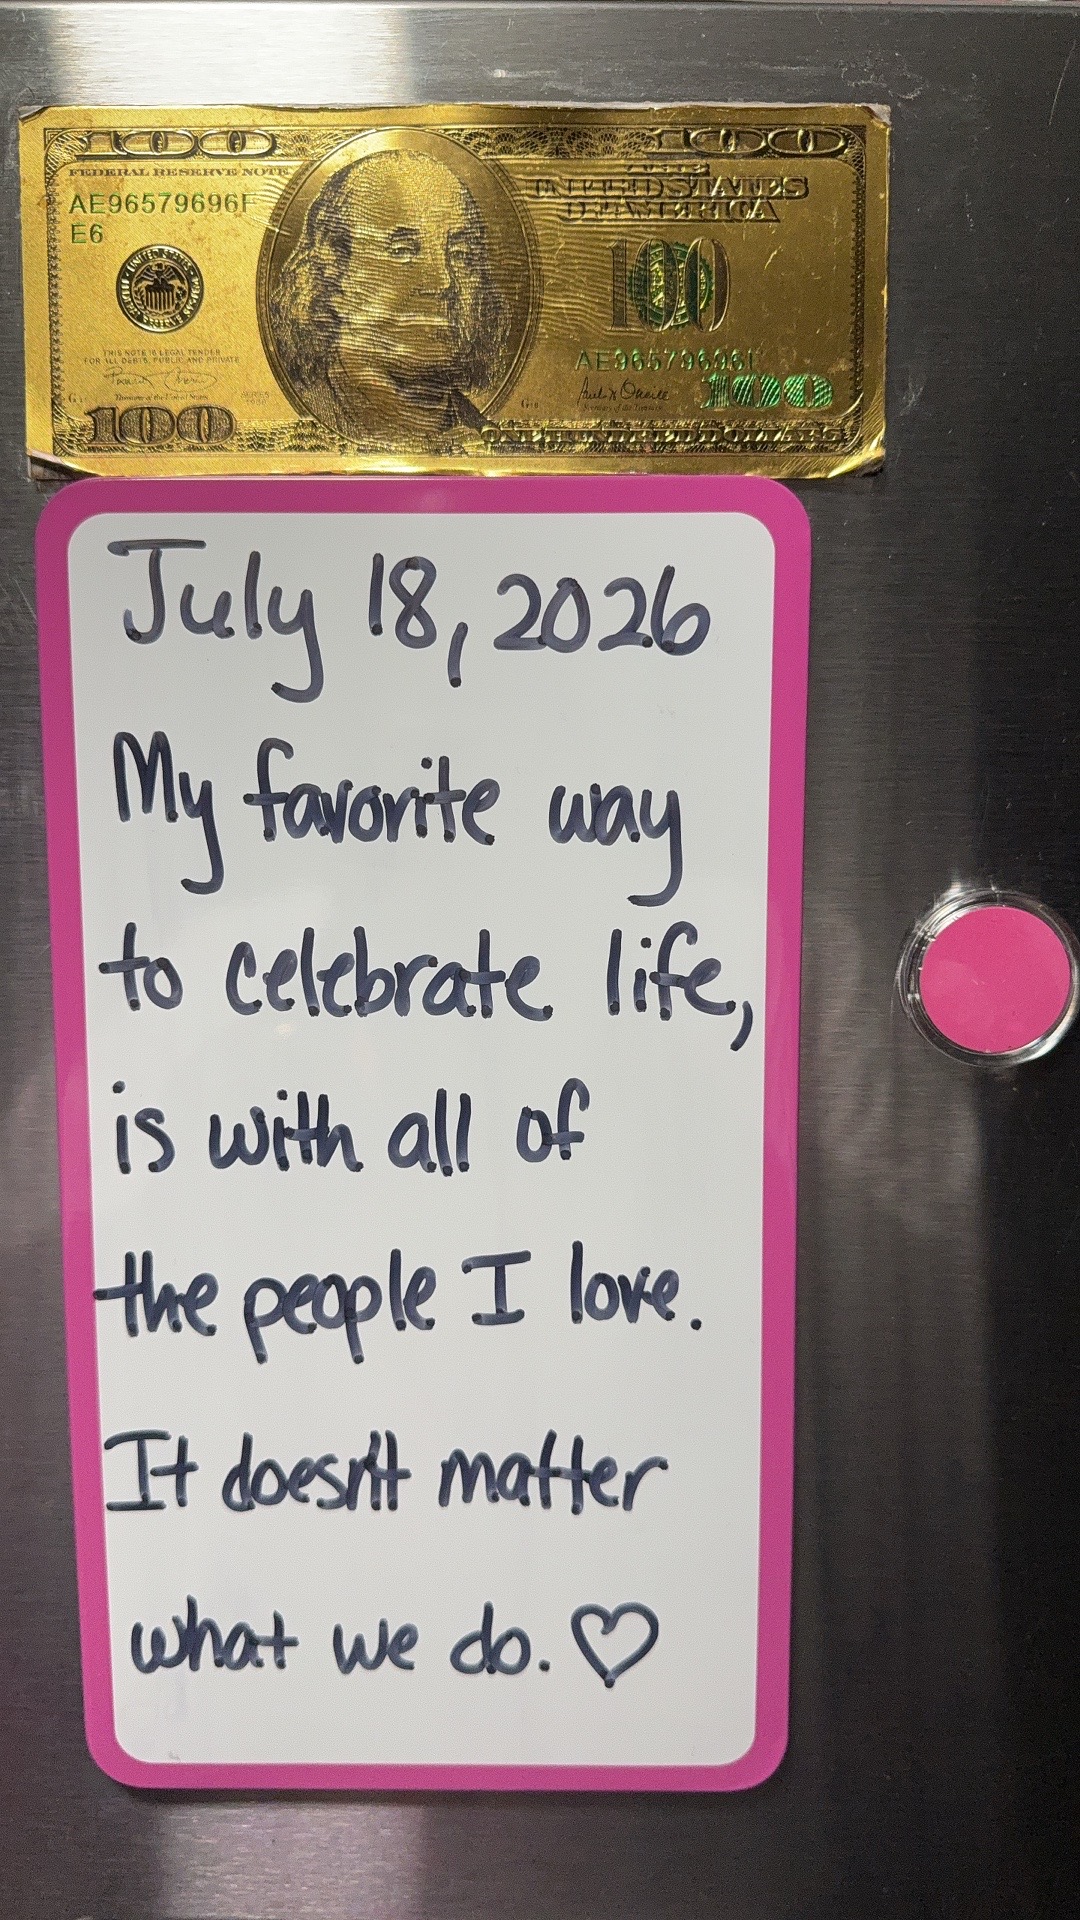 100 100
FEDERAL RESERVE NOTE
THE
UNITED STATES
OF AMERICA
AE96579696F
E6
100
UNITED STATES
THIS NOTE IS LEGAL TENDER
FOR ALL DEBTS, PUBLIC AND PRIVATE
AE96579696F
Treasurer of the United States
Secretary of the Treasury
100
100
ONE HUNDRED DOLLARS
July 18, 2026
My favorite way
to celebrate life,
is with all of
the people I love.
It doesn't matter
what we do. ♡